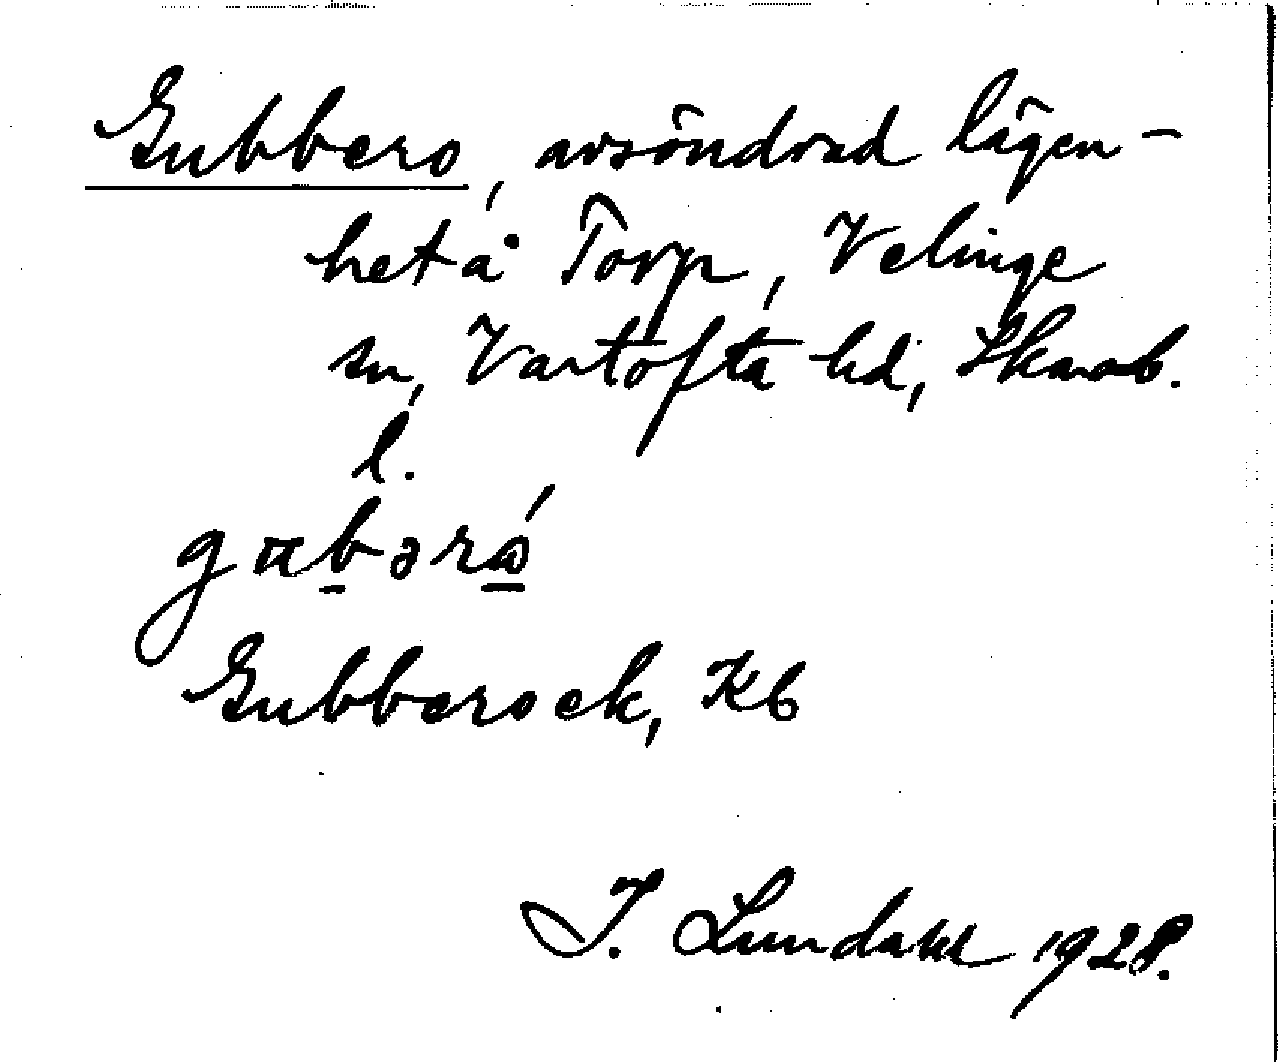 Gubbero, avsöndrad lägen-
het å Torp, Velinge
sn, Vartofta hd, Skarab.
l.
gubərö́
Gubberoek, Kb
I. Lundahl 1928.